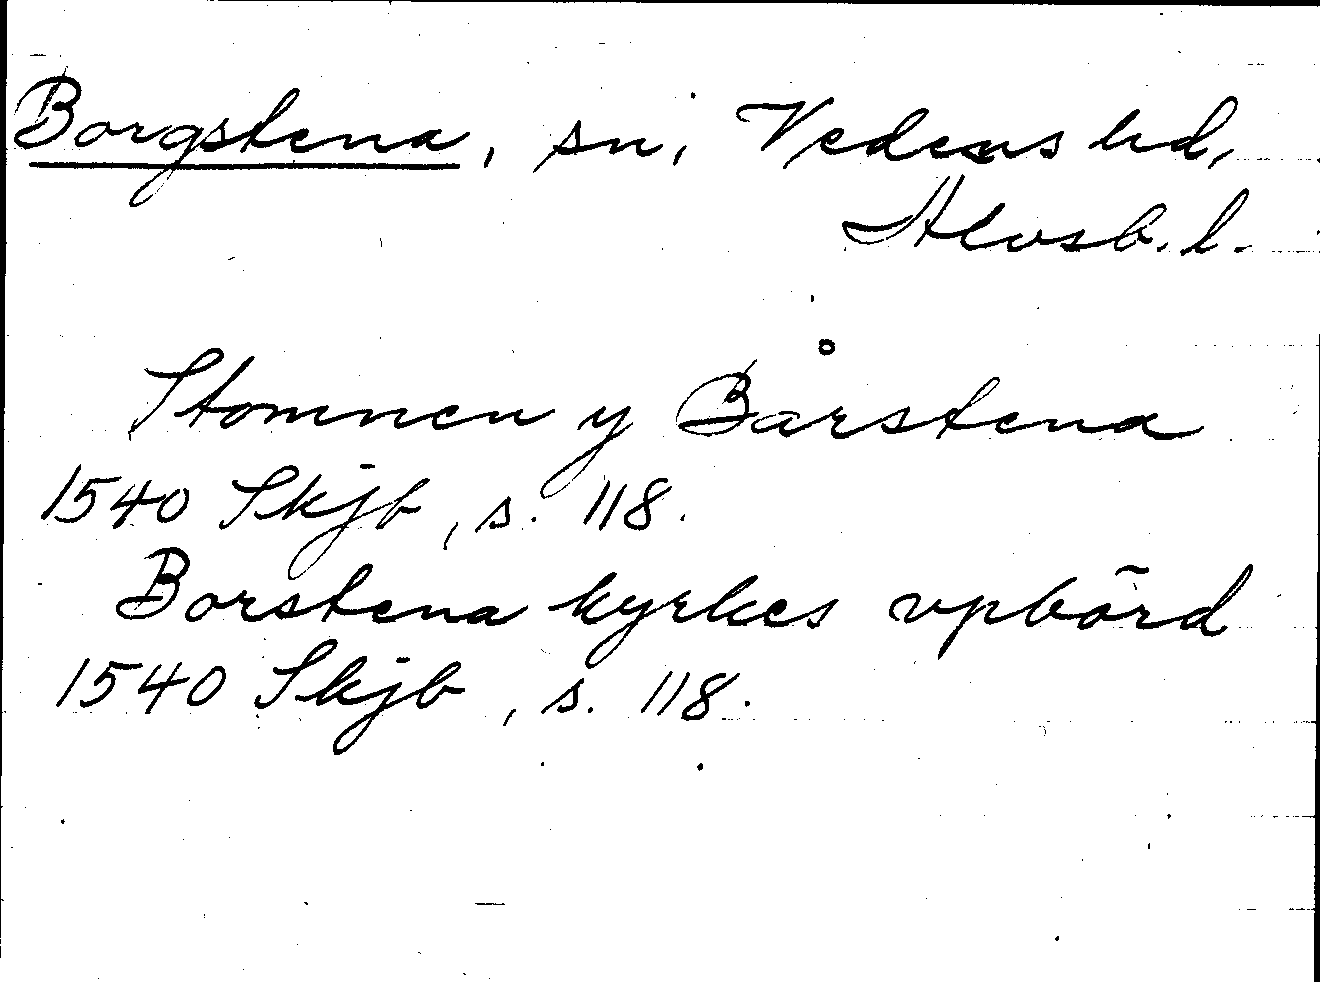 Borgstena, sn, Vedens hd,
Älvsb. l.
Stomnen y Bårstena
1540 Skjb, s. 118.
Borstena kyrkes vpbörd
1540 Skjb, s. 118.